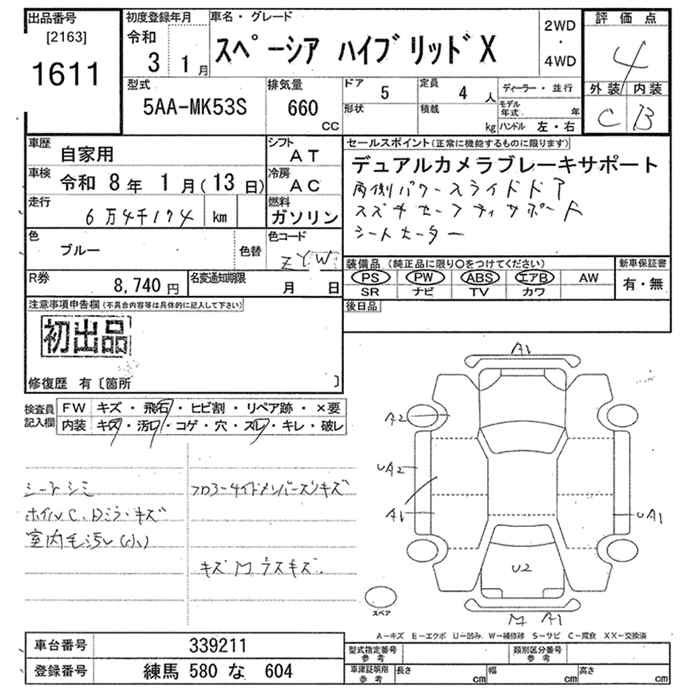 出品番号 初度登録年月 車名・グレード 2WD・4WD 評価点
[2163] 1611 令和 3 1月 スペーシア ハイブリッドX 4
型式 排気量 ドア 5 定員 4人 ディーラー・並行 外装 内装
5AA-MK53S 660 CC 形状 積載 kg モデル年式 年 ハンドル 左・右 C B
車歴 自家用 シフト AT セールスポイント(正常に機能するものに限ります)
車検 令和 8年 1月(13日) 冷房 AC デュアルカメラブレーキサポート
走行 6万4千174 km 燃料 ガソリン 両側パワースライドドア
スズキセーフティサポート
色 ブルー 色替 色コード ZYW シートヒーター
装備品(純正品に限り○をつけてください) 新車保証書
R券 8,740円 名変通知期限 月 日 PS PW ABS エアB AW 有・無
SR ナビ TV カワ
注意事項申告欄(不具合内容等は具体的に記入して下さい) 後日品
初出品
修復歴 有〔箇所 〕
検査員記入欄 FW キズ・飛石・ヒビ割・リペア跡・×要
内装 キズ・汚れ・コゲ・穴・スレ・キレ・破レ
A1
A2
UA2
シートシミ フロアサイドメンバーズリキズ
ホイルC、Dミラーキズ A1 UA1
室内毛汚レ(小)
キズMウスキズ. U2
スペア M A1
A-キズ E-エクボ U-凹み W-補修跡 S-サビ C-腐食 XX-交換済
車台番号 339211 型式指定番号 参考 類別区分番号 参考
登録番号 練馬 580 な 604 車庫証明用 参考 長さ cm 幅 cm 高さ cm